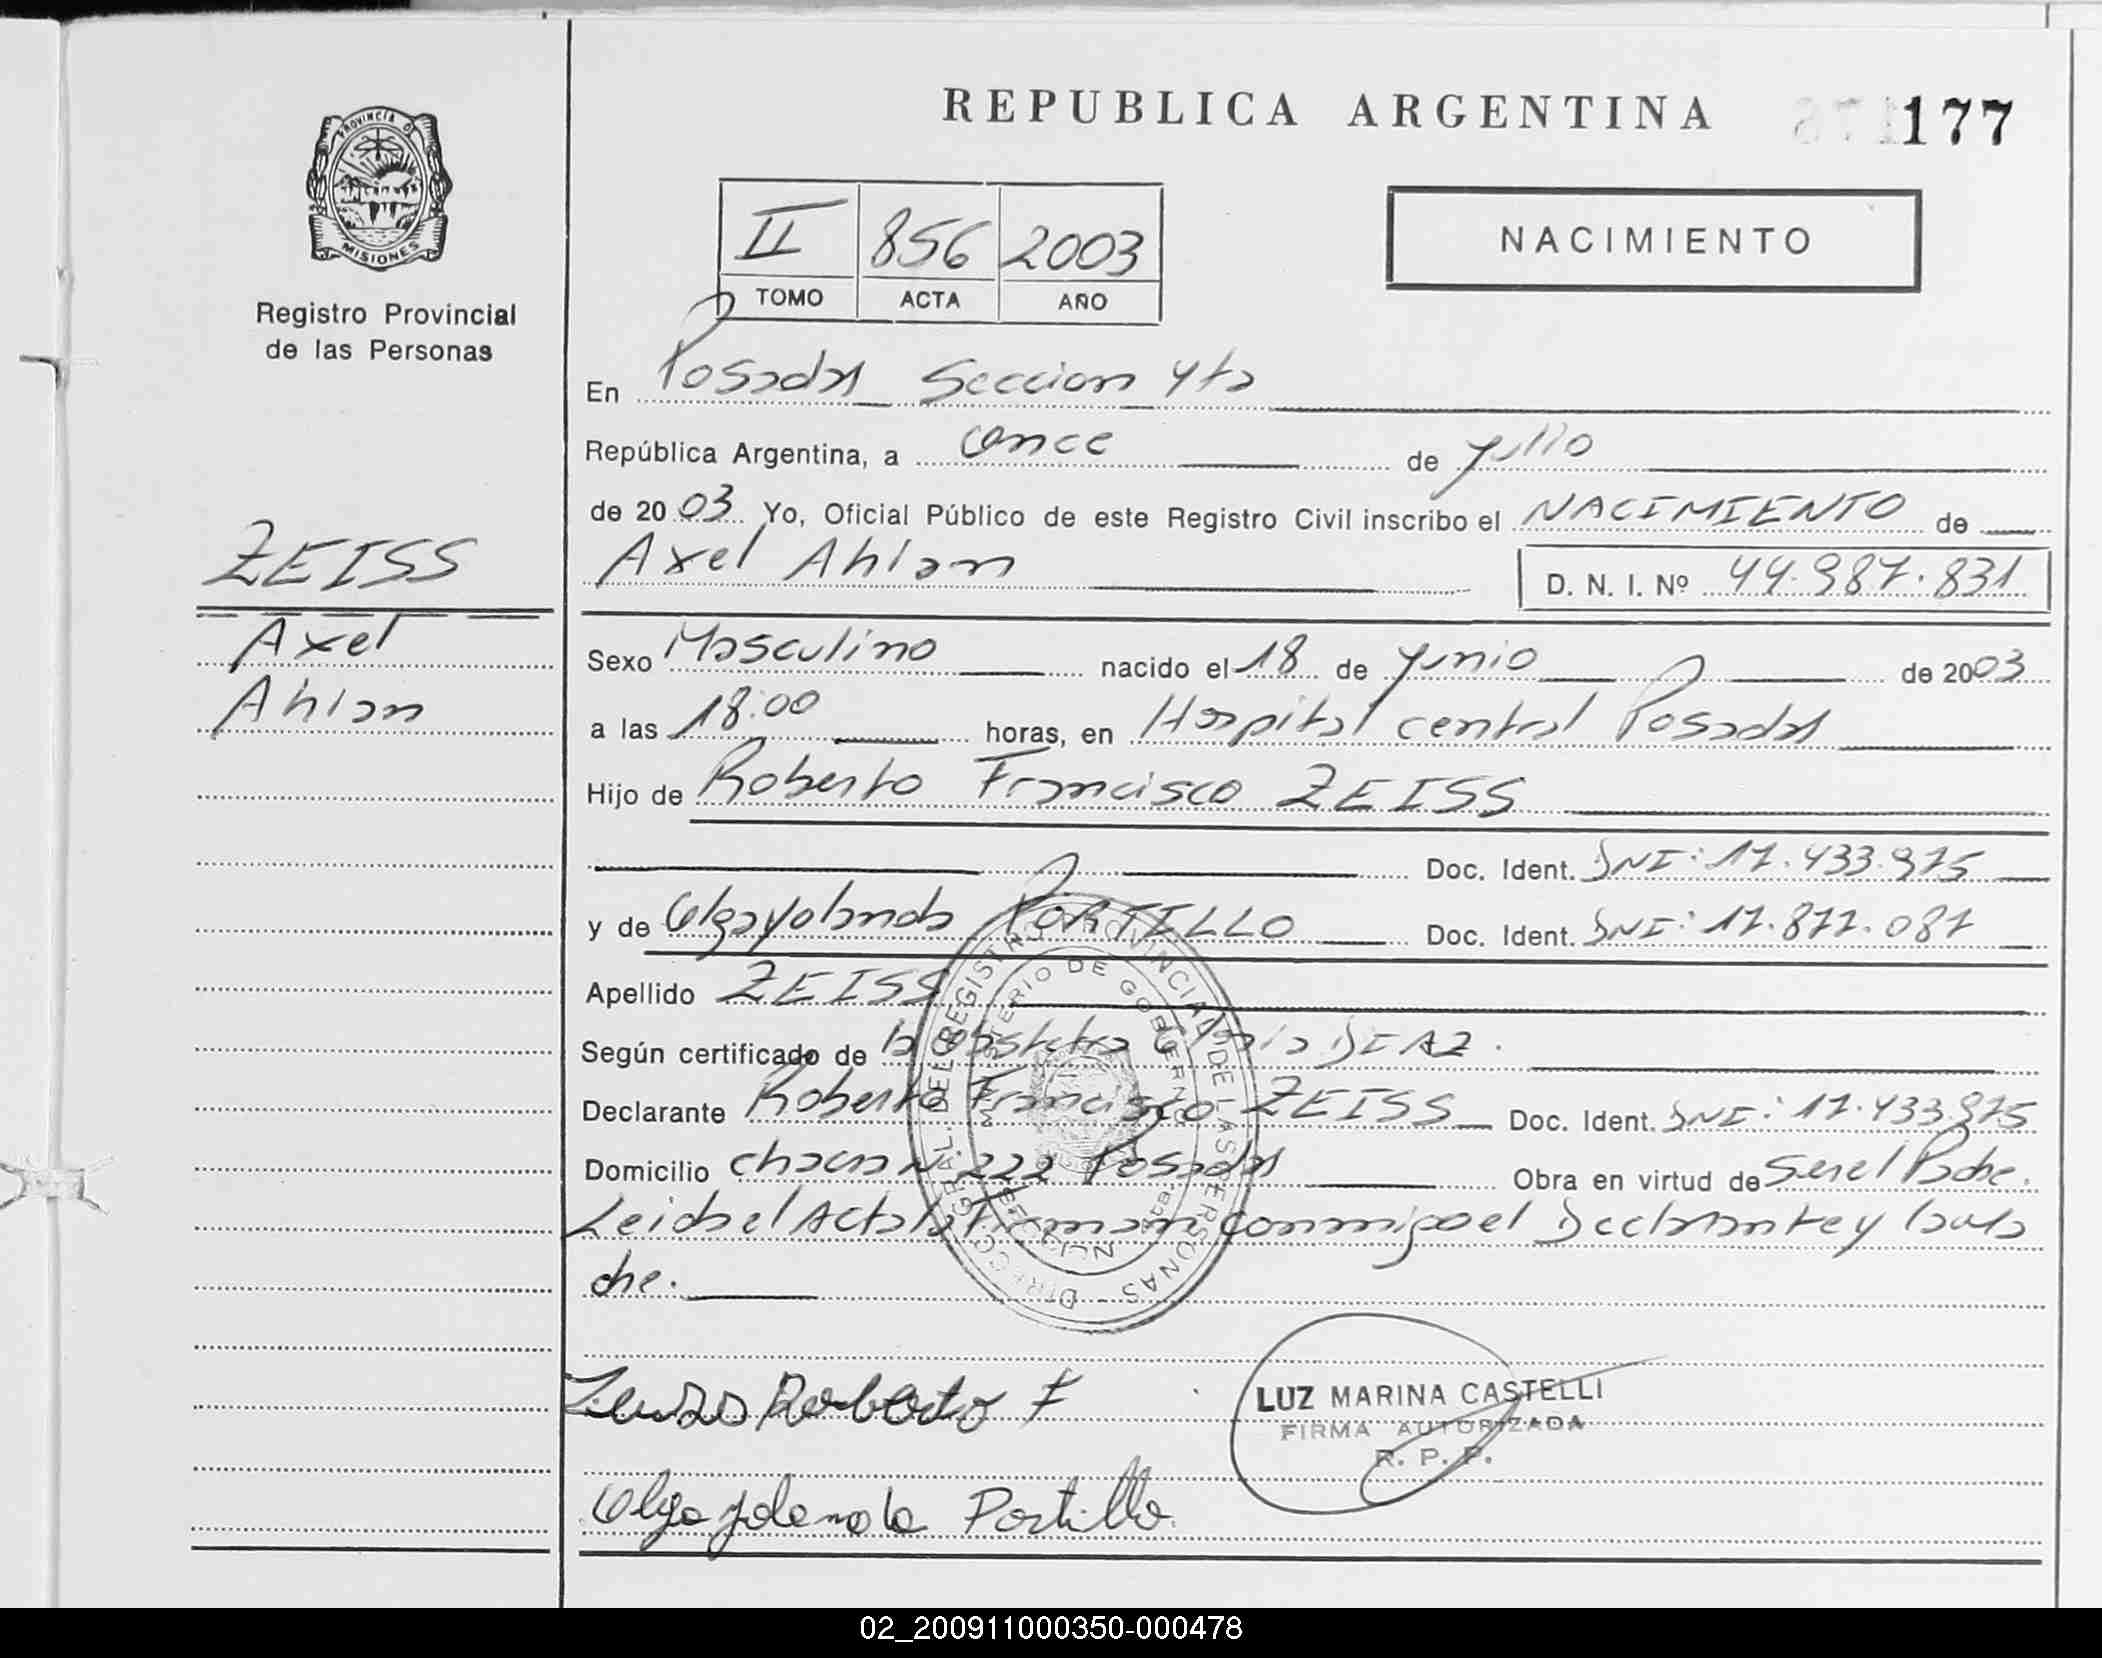 REPUBLICA ARGENTINA 177
PROVINCIA DE MISIONES
Registro Provincial
de las Personas
II 856 2003
TOMO ACTA AÑO
NACIMIENTO
En Posadas Seccion 4ta
República Argentina, a once de julio
de 2003 Yo, Oficial Público de este Registro Civil inscribo el NACIMIENTO de
Axel Ahlan D. N. I. Nº 44.987.831
ZEISS
Axel
Ahlan
Sexo Masculino nacido el 18 de junio de 2003
a las 18:00 horas, en Hospital central Posadas
Hijo de Roberto Francisco ZEISS
Doc. Ident. DNI: 17.433.975
y de Olga Yolanda PORTILLO Doc. Ident. DNI: 17.877.087
Apellido ZEISS
Según certificado de la Obstetra Gloria DIAZ.
Declarante Roberto Francisco ZEISS Doc. Ident. DNI: 17.433.975
Domicilio chacra Nº 222 Posadas Obra en virtud de Ser el Padre.
Leida el Acta la Firman conmigo el Declarante y la Ma
dre.
DIRECC. GRAL. DEL REGISTRO PROVINCIAL DE LAS PERSONAS
MINISTERIO DE GOBIERNO
Roberto F
LUZ MARINA CASTELLI
FIRMA AUTORIZADA
R. P. P.
Olga Yolanda Portillo
02_200911000350-000478